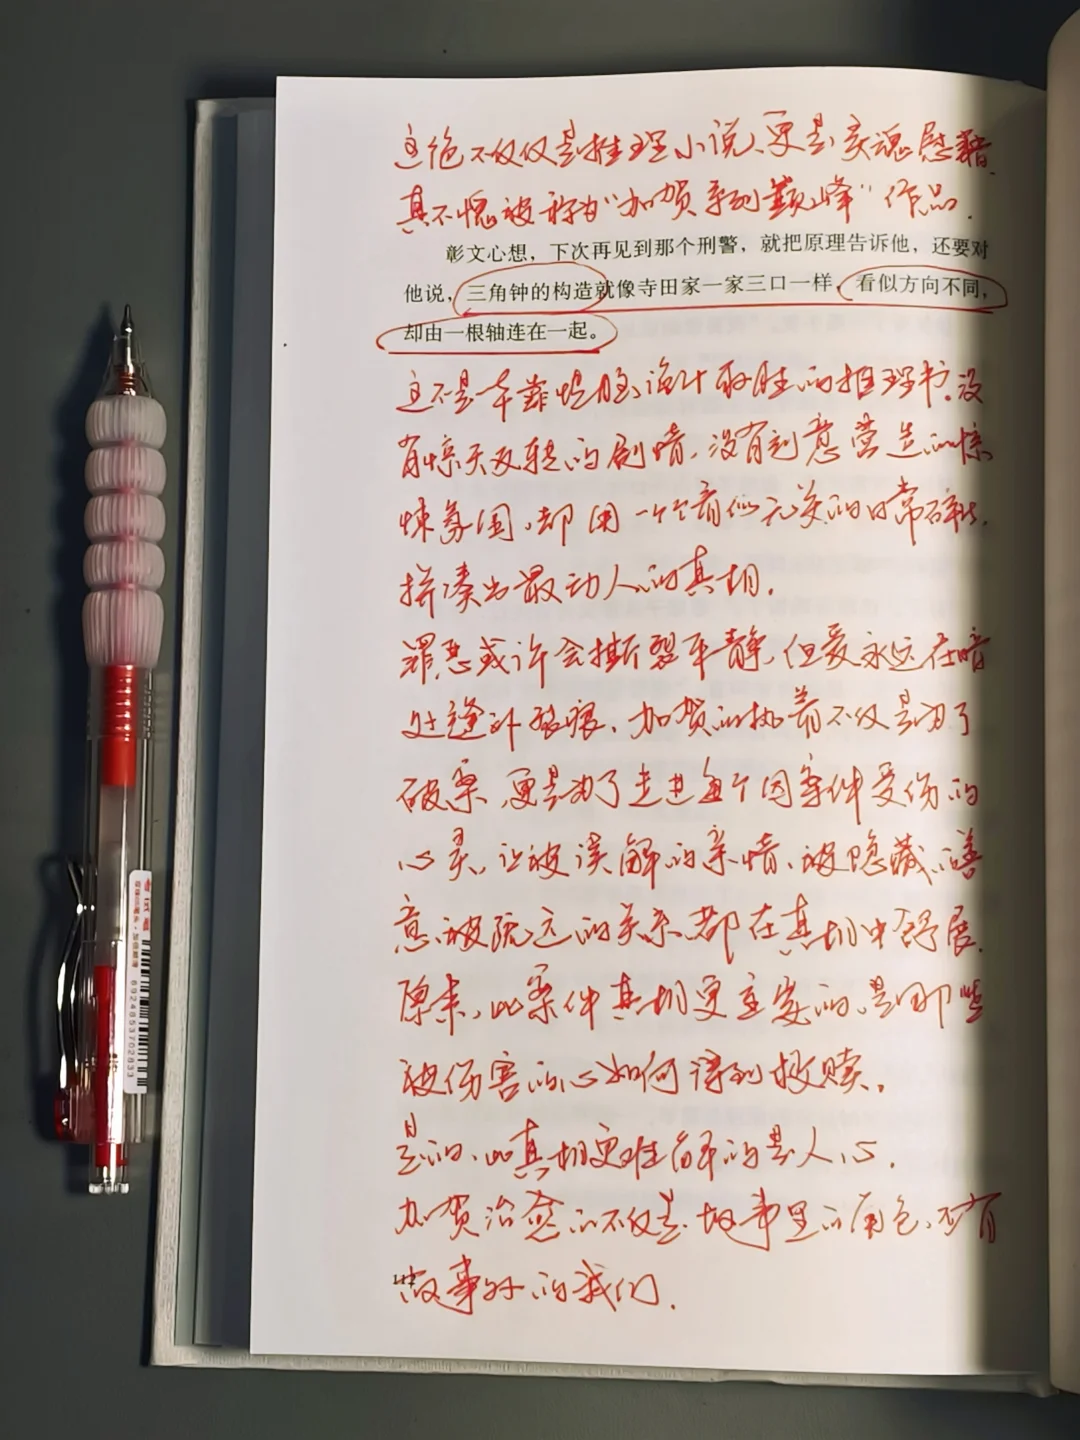 这绝不仅仅是推理小说、更是灵魂慰藉.
真不愧被称为“加贺系列巅峰”作品.
彰文心想，下次再见到那个刑警，就把原理告诉他，还要对
他说，三角钟的构造就像寺田家一家三口一样，看似方向不同，
却由一根轴连在一起。
这不是一本靠烧脑诡计取胜的推理书.没
有惊天反转的剧情，没有刻意营造的惊
悚氛围，却用一个个看似无关的日常碎片.
拼凑出最动人的真相.
罪恶或许会撕裂平静，但爱永远在暗
处缝补裂痕、加贺的执着不仅是为了
破案，更是为了走进每个因案件受伤的
心灵，让被误解的亲情、被隐藏的善
意、被疏远的关系，都在真相中舒展.
原来，比案件真相更重要的，是那些
被伤害的心如何得到救赎.
是的、比真相更难解的是人心.
加贺治愈的不仅是故事里的角色、还有
故事外的我们.
112
6924853702833